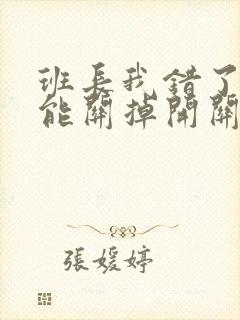 班长我错了
能關掉開關
張媛婷